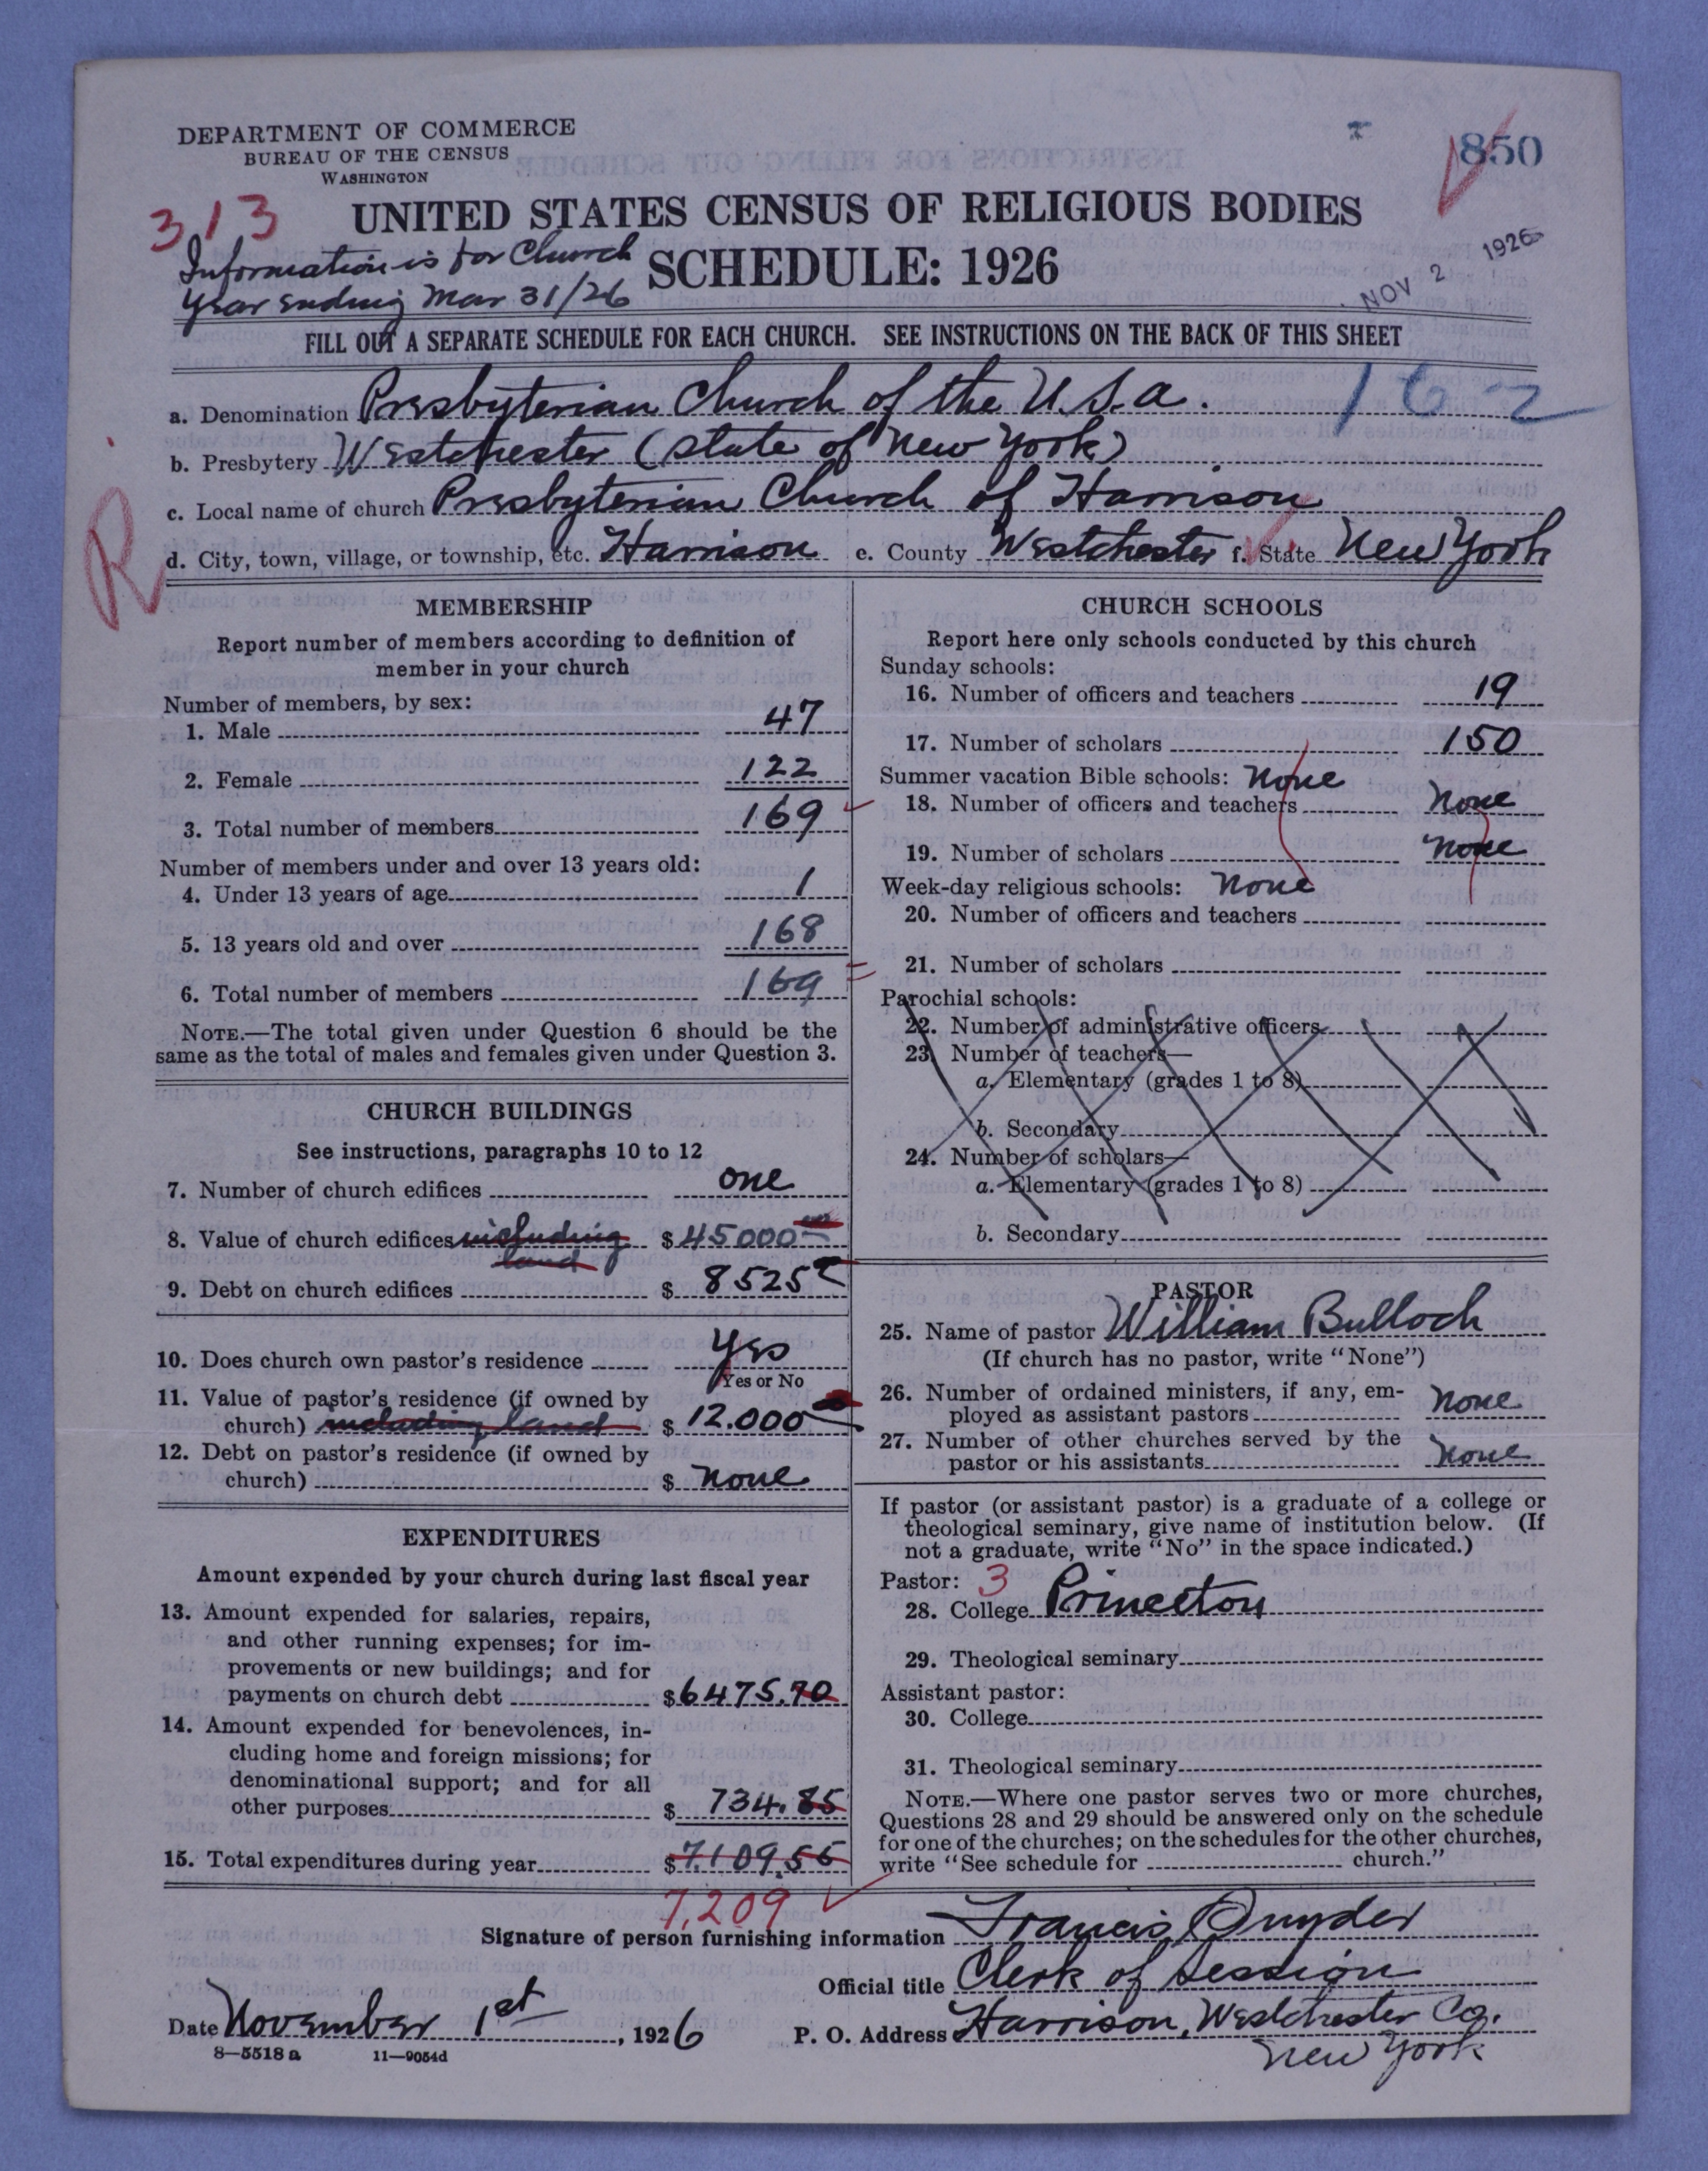 DEPARTMENT OF COMMERCE
BUREAU OF THE CENSUS
WASHINGTON
850
313
UNITED STATES CENSUS OF RELIGIOUS BODIES
SCHEDULE: 1926
Information is for Church
Year ending Mar 31/26
NOV 2 1926
FILL OUT A SEPARATE SCHEDULE FOR EACH CHURCH. SEE INSTRUCTIONS ON THE BACK OF THIS SHEET
a. Denomination Presbyterian Church of the U.S.a. 162
b. Presbytery Westchester (state of New York)
c. Local name of church Presbyterian Church of Harrison
R
d. City, town, village, or township, etc. Harrison e. County Westchester f. State New York
MEMBERSHIP
Report number of members according to definition of
member in your church
Number of members, by sex:
1. Male 47
2. Female 122
3. Total number of members 169
Number of members under and over 13 years old:
4. Under 13 years of age 1
5. 13 years old and over 168
6. Total number of members 169
NOTE.—The total given under Question 6 should be the
same as the total of males and females given under Question 3.
CHURCH BUILDINGS
See instructions, paragraphs 10 to 12
7. Number of church edifices one
8. Value of church edifices including $45000
land
9. Debt on church edifices $ 8525
10. Does church own pastor's residence Yes
Yes or No
11. Value of pastor's residence (if owned by
church) including land $ 12.000
12. Debt on pastor's residence (if owned by
church) $ None
EXPENDITURES
Amount expended by your church during last fiscal year
13. Amount expended for salaries, repairs,
and other running expenses; for im-
provements or new buildings; and for
payments on church debt $6475.70
14. Amount expended for benevolences, in-
cluding home and foreign missions; for
denominational support; and for all
other purposes $ 734.85
15. Total expenditures during year $7.109.55
7,209
CHURCH SCHOOLS
Report here only schools conducted by this church
Sunday schools:
16. Number of officers and teachers 19
17. Number of scholars 150
Summer vacation Bible schools: None
18. Number of officers and teachers None
19. Number of scholars None
Week-day religious schools: None
20. Number of officers and teachers
21. Number of scholars
Parochial schools:
22. Number of administrative officers
23. Number of teachers—
a. Elementary (grades 1 to 8)
b. Secondary
24. Number of scholars—
a. Elementary (grades 1 to 8)
b. Secondary
PASTOR
25. Name of pastor William Bulloch
(If church has no pastor, write "None")
26. Number of ordained ministers, if any, em-
ployed as assistant pastors None
27. Number of other churches served by the
pastor or his assistants None
If pastor (or assistant pastor) is a graduate of a college or
theological seminary, give name of institution below. (If
not a graduate, write "No" in the space indicated.)
Pastor: 3
28. College Princeton
29. Theological seminary
Assistant pastor:
30. College
31. Theological seminary
NOTE.—Where one pastor serves two or more churches,
Questions 28 and 29 should be answered only on the schedule
for one of the churches; on the schedules for the other churches,
write "See schedule for church."
Signature of person furnishing information Francis Snyder
Official title Clerk of Session
Date November 1st, 1926 P. O. Address Harrison, Westchester Co.
New York
8—5518 a 11—9054d